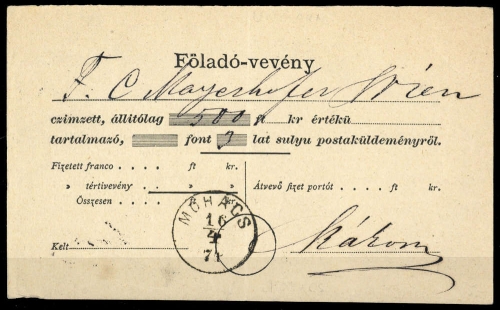 Föladó-vevény
F. C Mayerhofer Wien
czimzett, állitólag 500 ft kr értékü
tartalmazó, font lat sulyu postaküldeményről.
Fizetett franco ft kr.
» tértivevény » »
Átvevő fizet portót. ft kr.
Összesen kr.
MOHÁCS
16
4
74
Kelt